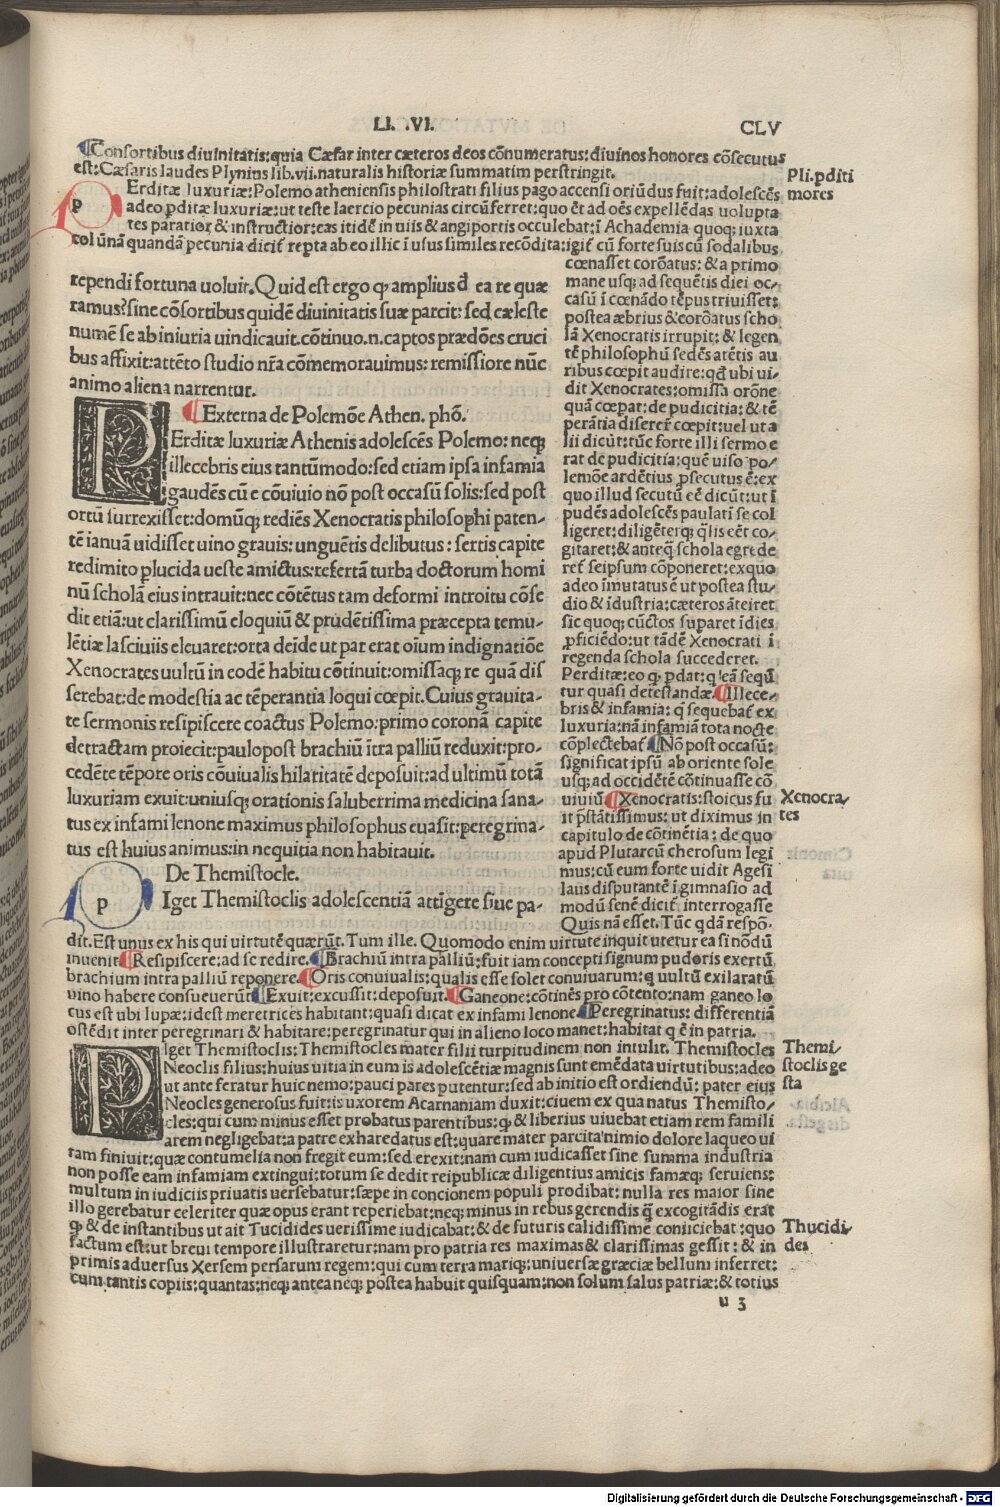 LI. .VI.
CLV
¶Consortibus diuinitatis:quia Cæsar inter cæteros deos cōnumeratus:diuinos honores cōsecutus
est:Cæsaris laudes Plynius lib.vii.naturalis historiæ summatim perstringit.
Pli.pditi
mores
p Erditæ luxuriæ:Polemo atheniensis philostrati filius pago accensi oriūdus fuit:adolescēs
adeo pditæ luxuriæ:ut teste laercio pecunias circūferret:quo & ad oēs expellēdas uolupta
tes paratior & instructior:eas itidē in uiis & angiportis occulebat:ī Achademia quoq; iuxta
colūnā quandā pecunia dicit repta ab eo illic ī usus similes recōdita:igit cū forte suis cū sodalibus
cœnasset corōatus: & a primo
mane usq; ad sequētis diei oc-
casū ī cœnādo tēpus triuisset:
postea æbrius & corōatus scho
lā Xenocratis irrupit: & legen
tē philosophū sedēs atētis au
ribus cœpit audire: qđ ubi ui-
dit Xenocrates:omissa orōne
quā cœpat: de pudicitia: & tē
perātia diserer cœpit:uel ut a
lii dicūt:tūc forte illi sermo e
rat de pudicitia:quē uiso po-
lemōe ardētius psecutus ē:ex
quo illud secutū eē dicūt:ut ī
pudēs adolescēs paulatī se col
ligeret:diligēterq; qlis eēt co-
gitaret:& anteq̄ schola egrede
ret seipsum cōponeret:exquo
adeo īmutatus ē ut postea stu-
dio & īdustria:cæteros āteiret
sic quoq; cūctos supare īdies
pficiēdo:ut tādē Xenocrati ī
regenda schola succederet.
Perditæ:eo q pdat:q eā sequū
tur quasi detestandæ.¶Illece-
bris & infamia: q̄ sequebat ex
luxuria:nā infamiā tota nocte
cōplectebat ¶Nō post occasū:
significat ipsū ab oriente sole
usq; ad occidētē cōtinuasse cō
uiuiū ¶Xenocratis:stoicus fu
it pstātissimus: ut diximus in
capitulo de cōtinētia: de quo
apud Plutarcū cherosum legi
mus:cū eum forte uidit Agesi
laus disputantē ī gimnasio ad
modū senē dicit interrogasse
Quis nā esset. Tūc qdā respō-
Xenocra-
tes
rependi fortuna uoluit.Quid est ergo q amplius đ ea re quæ
ramus?sine cōsortibus quidē diuinitatis suæ parcit: sed cæleste
numē se ab iniuria uindicauit.cōtinuo.n.captos prædōes cruci
bus affixit:attēto studio nrā cōmemorauimus: remissiore nūc
animo aliena narrentur.
¶Externa de Polemōe Athen. phō.
PErditæ luxuriæ Athenis adolescēs Polemo: neq;
illecebris eius tantūmodo:sed etiam ipsa infamia
gaudēs cū e cōuiuio nō post occasū solis:sed post
ortū surrexisset:domūq; rediēs Xenocratis philosophi paten-
tē ianuā uidisset uino grauis: unguētis delibutus: sertis capite
redimito plucida ueste amictus:refertā turba doctorum homi
nū scholā eius intrauit:nec cōtētus tam deformi introitu cōse
dit etiā:ut clarissimū eloquiū & prudētissima præcepta temu-
lētiæ lasciuiis eleuaret:orta deīde ut par erat oīum indignatiōe
Xenocrates uultū in eodē habitu cōtinuit:omissaq; re quā dis
serebat:de modestia ac tēperantia loqui cœpit.Cuius grauita-
te sermonis resipiscere coactus Polemo:primo coronā capite
detractam proiecit:paulopost brachiū ītra palliū reduxit:pro-
cedēte tēpore oris cōuiualis hilaritatē deposuit:ad ultimū totā
luxuriam exuit:uniusq; orationis saluberrima medicina sana-
tus ex infami lenone maximus philosophus euasit:peregrina-
tus est huius animus:in nequitia non habitauit.
De Themistocle.
p Iget Themistoclis adolescentiā attigere siue pa-
dit.Est unus ex his qui uirtutē quærūt. Tum ille. Quomodo enim uirtute inquit utetur ea si nōdū
inuenit ¶Resipiscere:ad se redire. ¶Brachiū intra palliū:fuit iam concepti signum pudoris exertū
brachium intra palliū reponere. ¶Oris conuiualis:qualis esse solet conuiuarum:q uultū exilaratū
uino habere consueuerūt ¶Exuit:excussit:deposuit. ¶Ganeone:cōtinēs pro cōtento:nam ganeo lo
cus est ubi lupæ:idest meretrices habitant:quasi dicat ex infami lenone ¶Peregrinatus: differentiā
ostēdit inter peregrinari & habitare:peregrinatur qui in alieno loco manet:habitat q ē in patria.
PIget Themistoclis: Themistocles mater filii turpitudinem non intulit. Themistocles
Neoclis filius:huius uitia in eum is adolescētiæ magnis sunt emēdata uirtutibus:adeo
ut ante feratur huic nemo:pauci pares putentur:sed ab initio est ordiendū: pater eius
Neocles generosus fuit:is uxorem Acarnaniam duxit:ciuem ex qua natus Themisto-
cles:qui cum minus esset probatus parentibus:q & liberius uiuebat etiam rem famili
arem negligebat:a patre exharedatus est:quare mater parcita nimio dolore laqueo ui
tam finiuit:quæ contumelia non fregit eum:sed erexit:nam cum iudicasset sine summa industria
non posse eam infamiam extingui:totum se dedit reipublicæ diligentius amicis famæq; seruiens:
multum in iudiciis priuatis uersebatur:sæpe in concionem populi prodibat: nulla res maior sine
illo gerebatur celeriter quæ opus erant reperiebat:neq; minus in rebus gerendis q̄ excogitādis erat
q & de instantibus ut ait Tucidides uerissime iudicabat:& de futuris calidissime coniiciebat:quo
factum est:ut breui tempore illustraretur:nam pro patria res maximas & clarissimas gessit: & in
primis aduersus Xersem persarum regem:qui cum terra mariq; uniuersæ græciæ bellum inferret:
cum tantis copiis:quantas:neq; antea neq; postea habuit quisquam:non solum salus patriæ:& totius
Themi-
stoclis ge
sta
Thucidi-
des
u 3
Digitalisierung gefördert durch die Deutsche Forschungsgemeinschaft - DFG